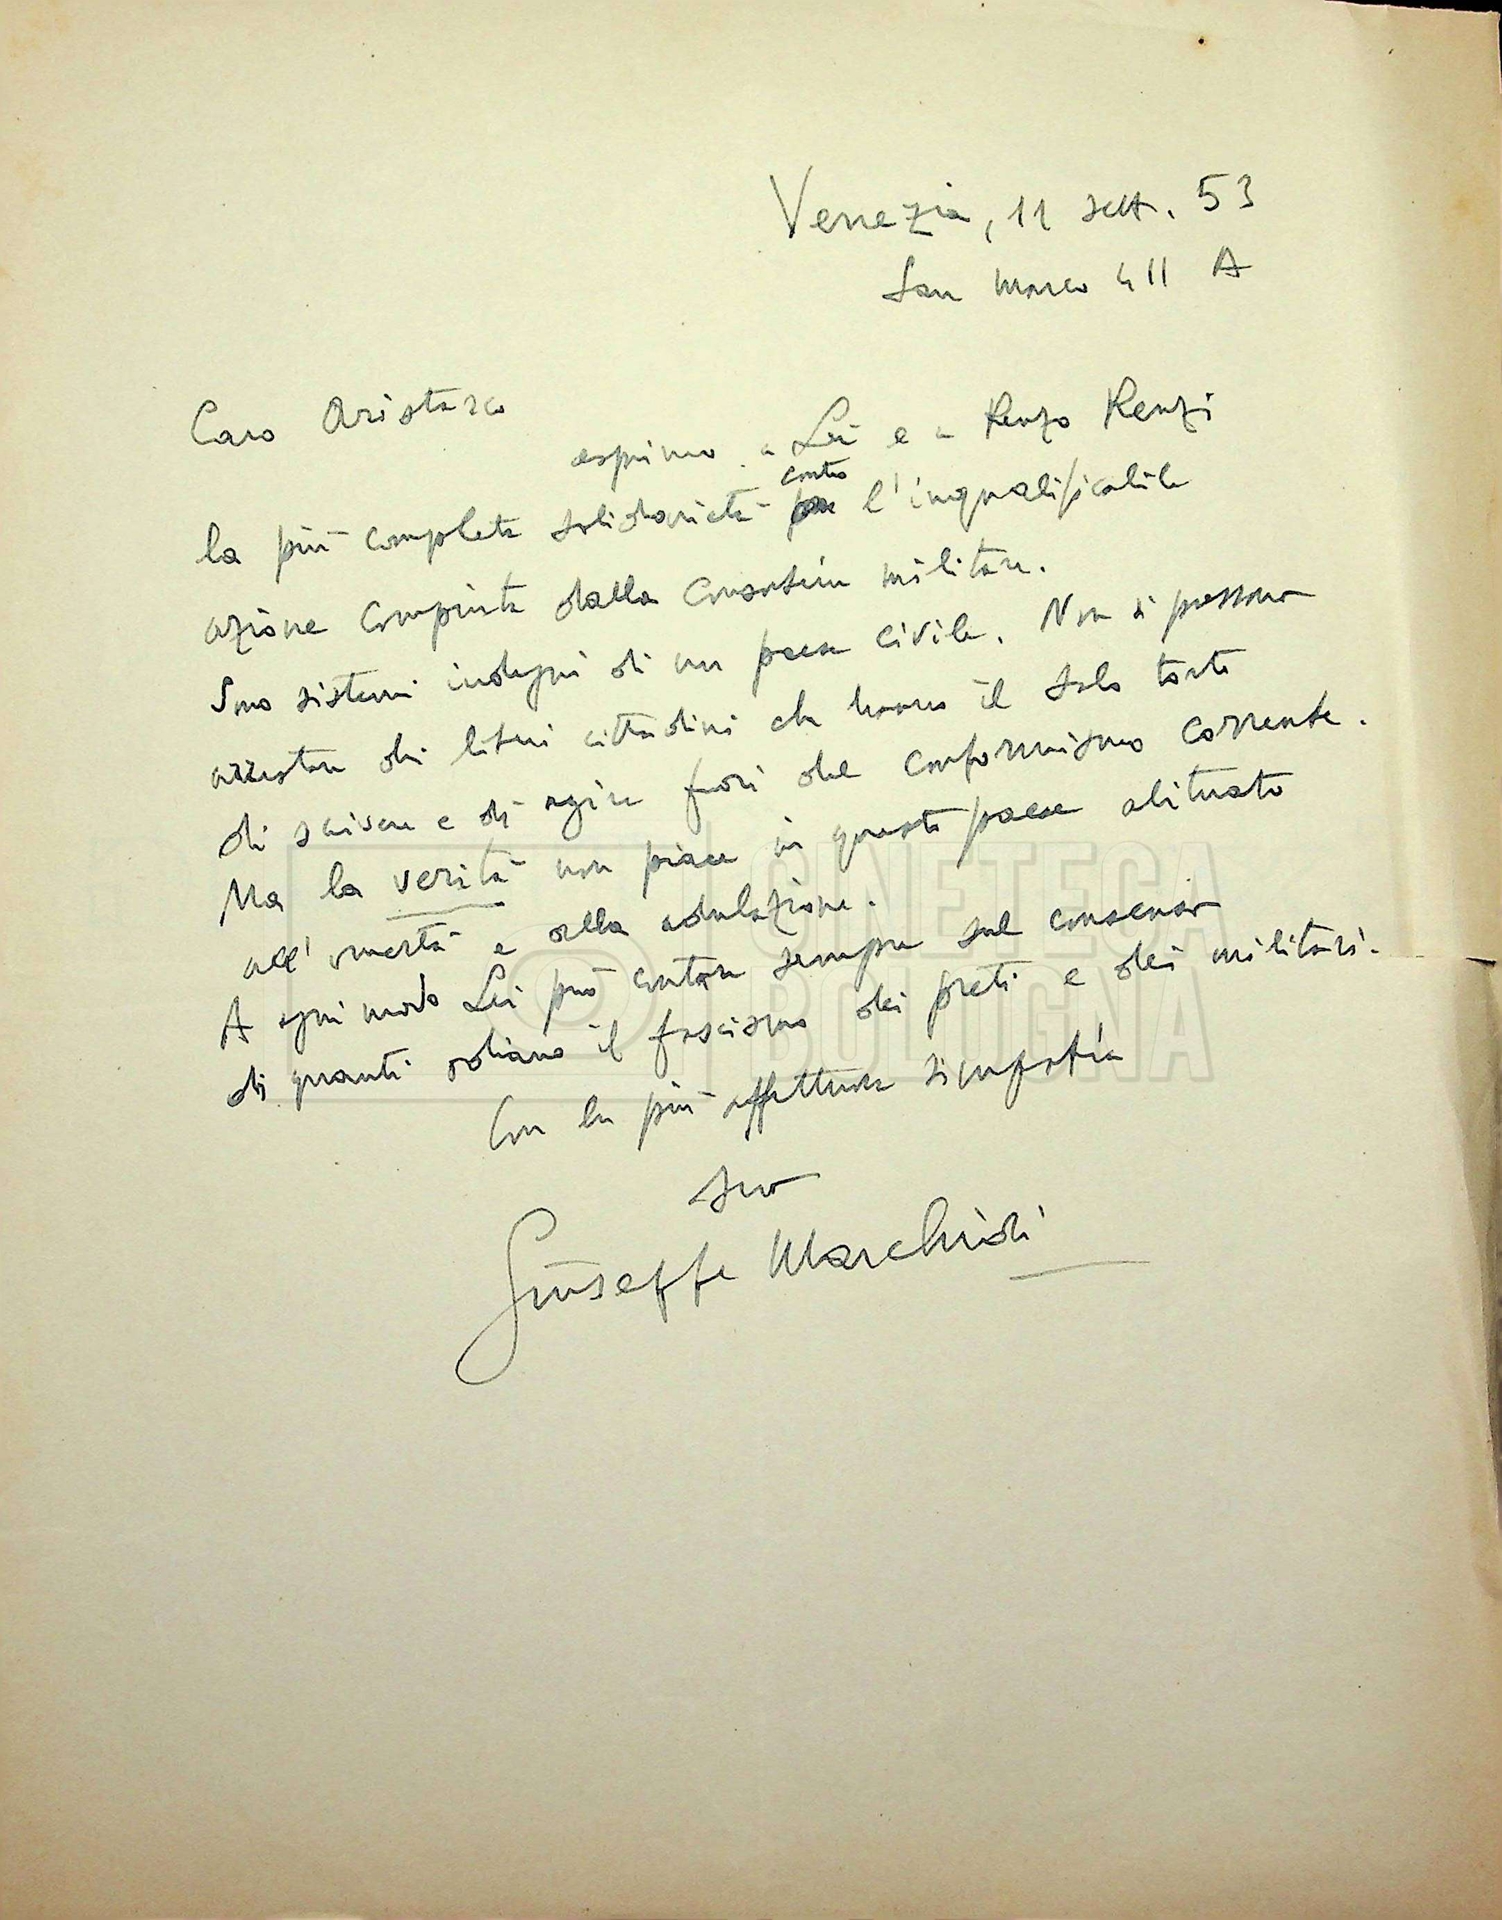 Venezia, 11 sett. 53
San Marco 411 A
Caro Aristarco
esprimo a Lei e a Renzo Renzi
la più completa solidarietà contro l'inqualificabile
azione compiuta dalla militare.
Sono sistemi indegni di un paese civile. Non si possono
arrestare dei liberi cittadini che hanno il solo torto
di scrivere e di agire fuori del conformismo corrente.
Ma la verità non piace in questo paese abituato
all'omertà e alla adulazione.
A ogni modo Lei può contare sempre sul consenso
di quanti odiano il fascismo dei preti e dei militari.
Con la più affettuosa simpatia
suo
Giuseppe Marchiori
CINETECA
BOLOGNA